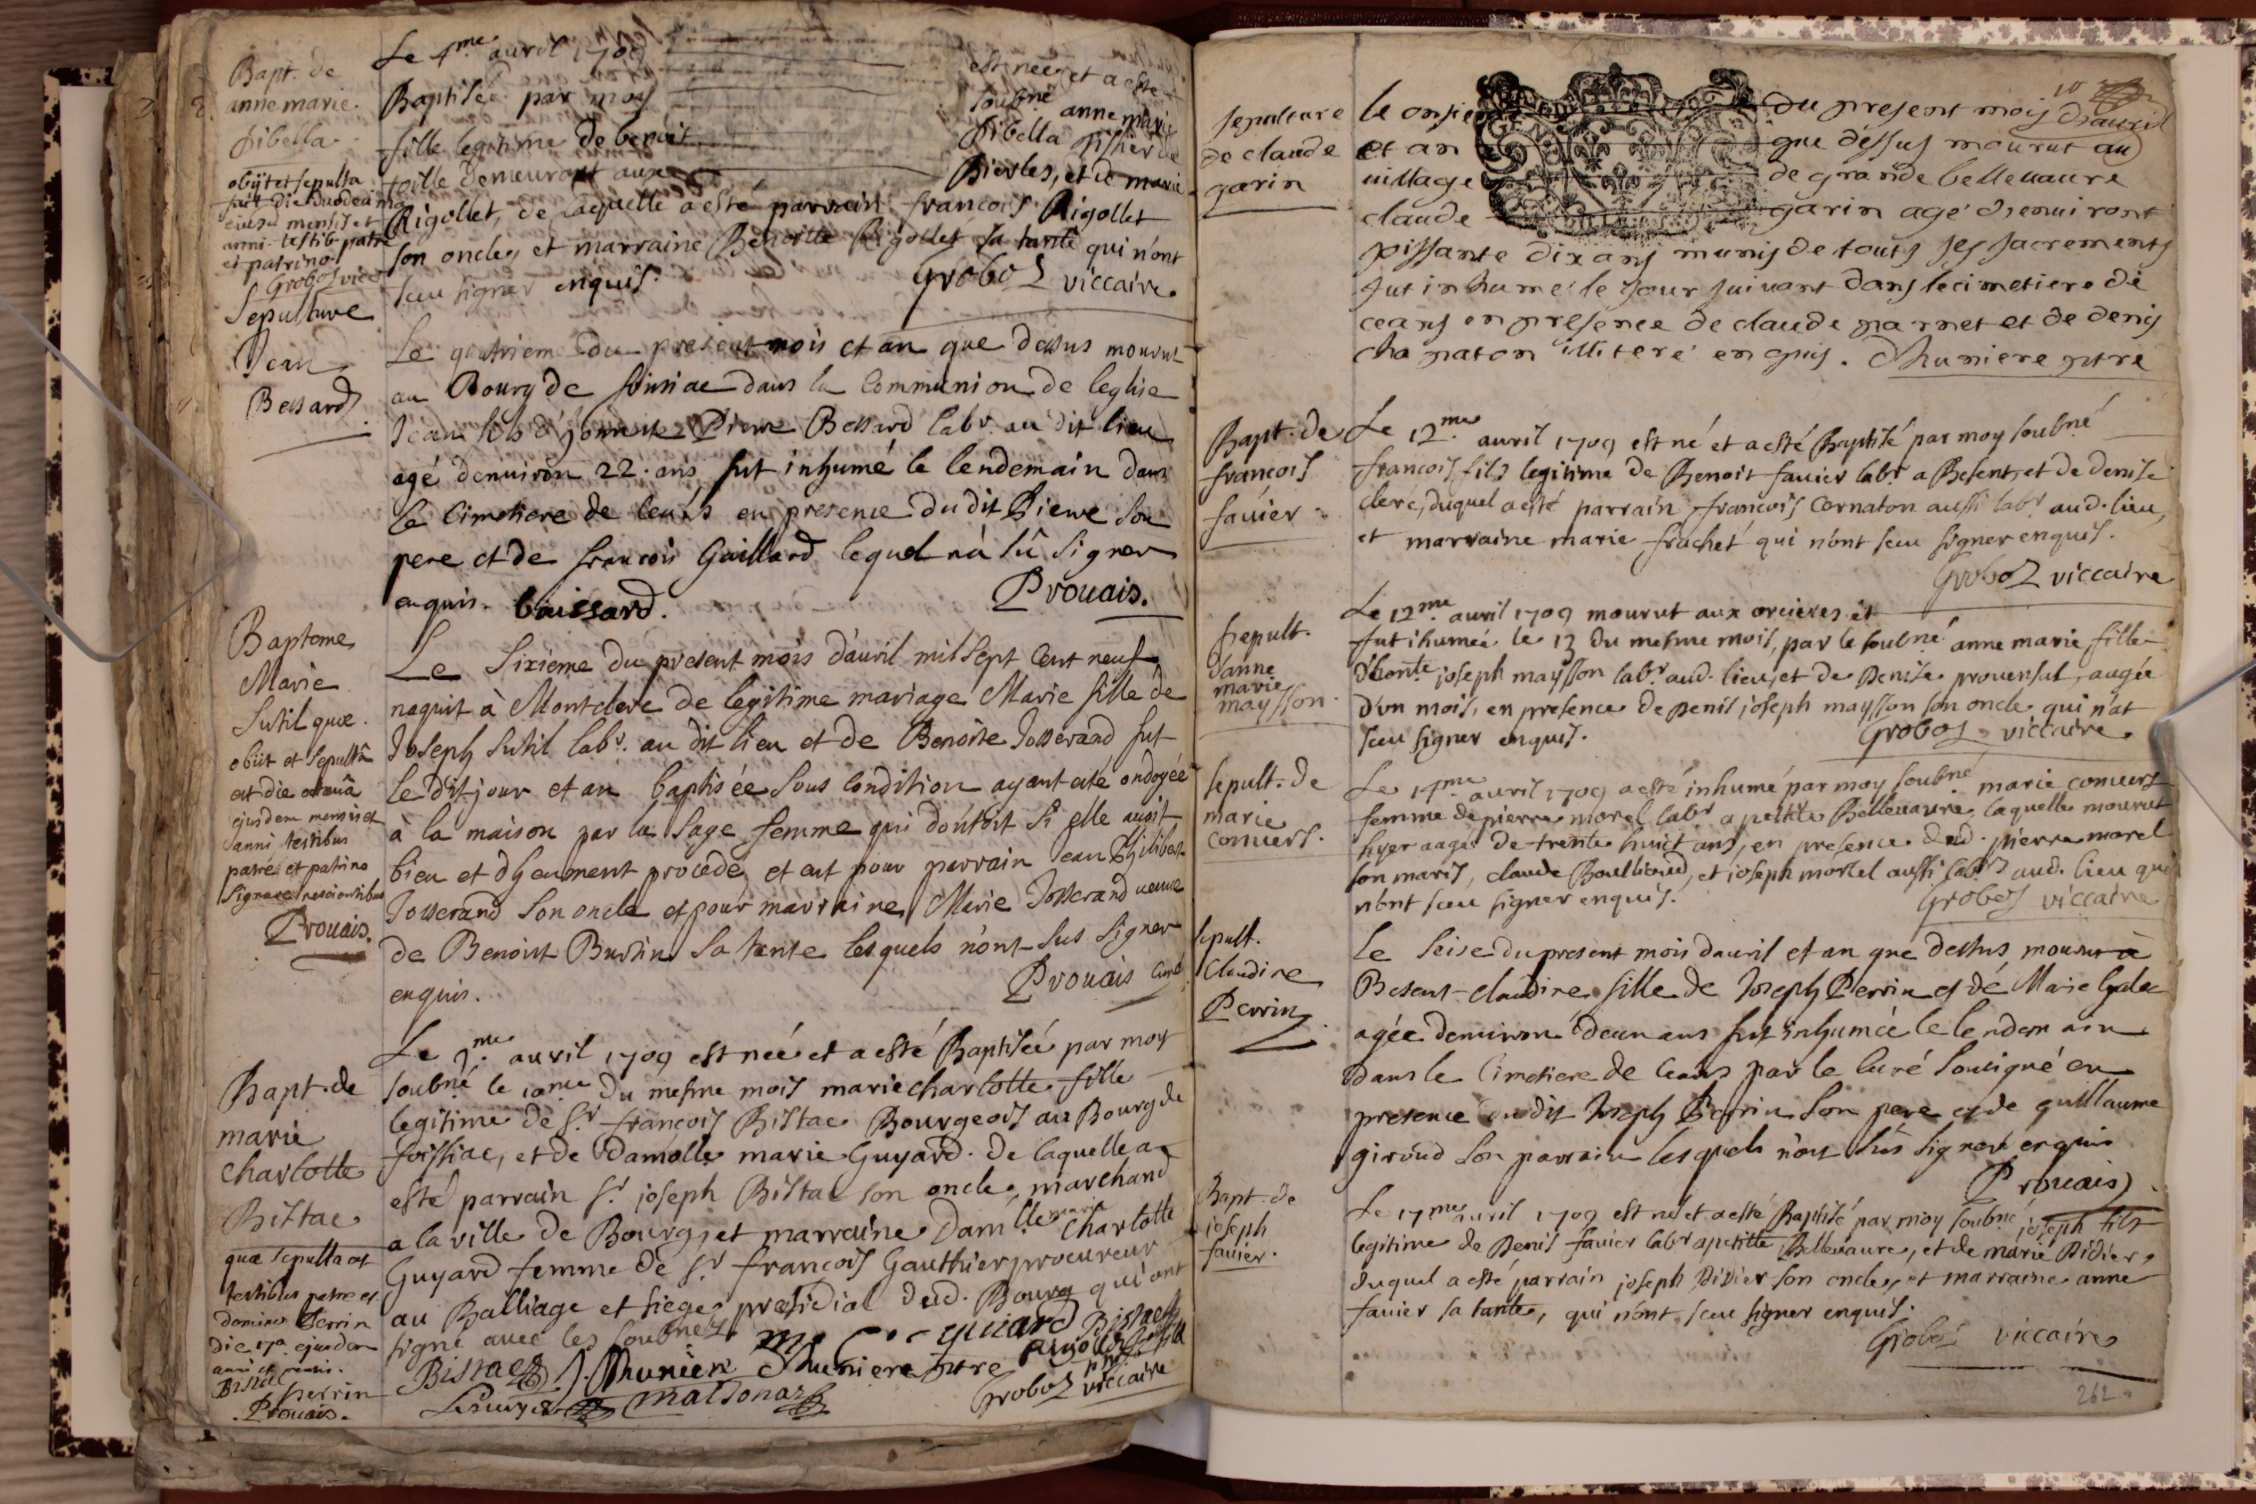 Bapt. de
anne marie
pibella
obiit et sepulta
fuit die duodecima
eiusd mensis et
anni testib patre
et patrino
Groboz vicc
Le 4me auril 1709 est née et a esté
Baptisée par moy soubné anne marie
fille legitime de benoit pibella tissier de
toille demeurant aux Bievles, et de marie
Rigollet, de laquelle a esté parrain francois Rigollet
son oncle, et marraine Benoitte Rigollet sa tante qui n'ont
sceu signer enquis. Groboz viccaire
Sepulture
Jean
Bessard
Le quatrieme du present mois et an que dessus mourut
au Bourg de foissiac dans la Communion de leglise
Jean fils d'honneste Pierre Bessard labr. au dit lieu
agé denuiron 22. ans, fut inhumé le lendemain dans
le Cimetiere de ceans en presence dudit Pierre son
pere et de francois Gaillard lequel n'a sû signer
enquis. baissard. Prouais.
Bapteme
Marie
Sutil quæ
obiit et sepulta
est die octauâ
ejusdem mensis et
anni testibus
patre et patrino
signare nescientibus
Prouais.
Le Sixieme du present mois d'auril mil sept cent neuf
naquit à Montclere de legitime mariage Marie fille de
Joseph Sutil labr. au dit lieu et de Benoîte Josserand fut
le dit jour et an baptisée sous condition ayant eté ondoyée
à la maison par la sage femme qui doutoit si elle auoit
bien et dheument procedé, et eut pour parrain Jean Philibert
Josserand son oncle et pour marraine Marie Josserand veuue
de Benoist Burtin sa tante lesquels n'ont sus signer
enquis. Prouais Curé
Bapt. de
marie
charlotte
Bistac
quæ sepulta est
testibus patre et
domino Perrin
die 17a ejusdem
anni et mensi.
Bistac
Perrin
Prouais.
Le 9me auril 1709 est née et a esté Baptisée par moy
soubné le 10me du mesme mois marie charlotte fille
legitime de Sr francois Bistac Bourgeois au Bourg de
foissiac, et de damolle marie Guyard. de laquelle a
esté parrain Sr joseph Bistac son oncle, marchand
a la ville de Bourg, et marraine Damlle marie charlotte
Guyard femme de Sr francois Gauthier procureur
au Balliage et siege præsidial dud. Bourg qui ont
signé auec les soubnez.
m C guiard Bistac
Bistac J. Thuniere Thuniere ptre
maldonaz Groboz viccaire
sepulture
de claude
garin
le onsieme du present mois dauril
et an que dessus mourut au
uillage de grande belleuaure
claude garin agé denuiront
soissante dix ans munis de touts ses sacrements
fut inhumé le jour suiuant dans le cimetiere de
ceans en presence de claude parnet et de denis
chapaton illiteré enquis. Thuniere ptre
Bapt. de
francois
fauier
Le 12me auril 1709 est né et a esté Baptisé par moy soubné
francois fils legitime de Benoit fauier labr a Besent, et de denise
clere, duquel a esté parrain francois Cornaton aussi labr aud. lieu,
et marraine marie frachet qui n'ont sceu signer enquis.
Groboz viccaire
sepult.
d'anne
marie
maysson
Le 12me auril 1709 mourut aux orcieres et
fut ihumée le 13 du mesme mois, par le soubné anne marie fille
d'honte joseph maysson labr aud. lieu, et de Denise prouensat, aagée
d'un mois, en presence de Denis joseph maysson son oncle qui n'at
sceu signer enquis. Groboz viccaire
sepult. de
marie
conuers.
Le 14me auril 1709 a esté inhumé par moy soubné marie conuers
femme de pierre morel labr a petitte Belleuaure laquelle mourut
hyer aagée de trente huict ans, en presence dud. pierre morel
son maris, claude Boulliond, et joseph morel aussi labrs aud. lieu qui
n'ont sceu signer enquis. Grobos viccaire
sepult.
Claudine
Perrin
Le seise du present mois dauril et an que dessus mourut à
Besent claudine fille de Joseph Perrin et de Marie
agée denuiron deux ans fut inhumée le lendemain
dans le Cimetiere de ceans par le curé sousigné en
presence dudit Joseph Perrin son pere et de guillaume
giroud son parrain lesquels n'ont sus signer enquis
Prouais
Bapt. de
joseph
fauier.
Le 17me auril 1709 est né et a esté Baptisé par moy soubné joseph fils
legitime de Denis fauier labr a petitte Belleuaure, et de marie Didier,
duquel a esté parrain joseph Didier son oncle, et marraine anne
fauier sa tante, qui n'ont sceu signer enquis.
Grobos viccaire
262